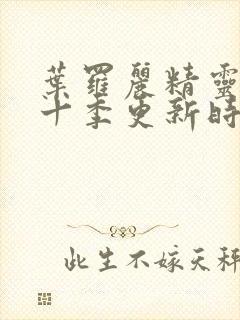 葉羅麗精靈
十季更新時
此生不嫁天秤